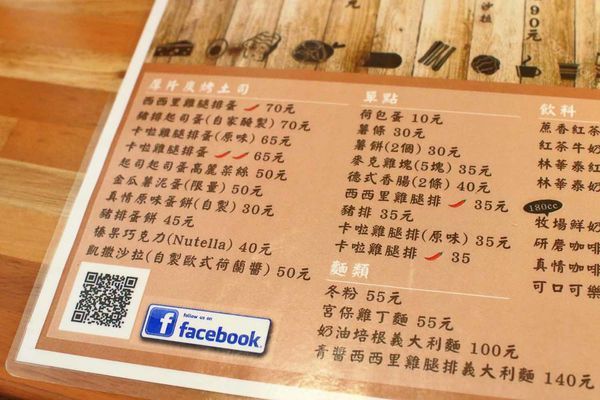 沙拉
90元
厚片炭烤土司
西西里雞腿排蛋 70元
豬排起司蛋(自家醃製) 70元
卡啦雞腿排蛋(原味) 65元
卡啦雞腿排蛋 65元
起司起司蛋高麗菜絲 50元
金瓜薯泥蛋(限量) 50元
真情原味蛋餅(自製) 30元
豬排蛋餅 45元
榛果巧克力(Nutella) 40元
凱撒沙拉(自製歐式荷蘭醬) 50元
follow us on
facebook
單點
荷包蛋 10元
薯條 30元
薯餅(2個) 30元
麥克雞塊(5塊) 35元
德式香腸(2條) 40元
西西里雞腿排 35元
豬排 35元
卡啦雞腿排(原味) 35元
卡啦雞腿排 35
麵類
冬粉 55元
宮保雞丁麵 55元
奶油培根義大利麵 100元
青醬西西里雞腿排義大利麵 140元
飲料
蔗香紅茶
紅茶牛奶
林華泰紅
林華泰奶
180cc
牧場鮮奶
研磨咖啡
真情咖啡
可口可樂